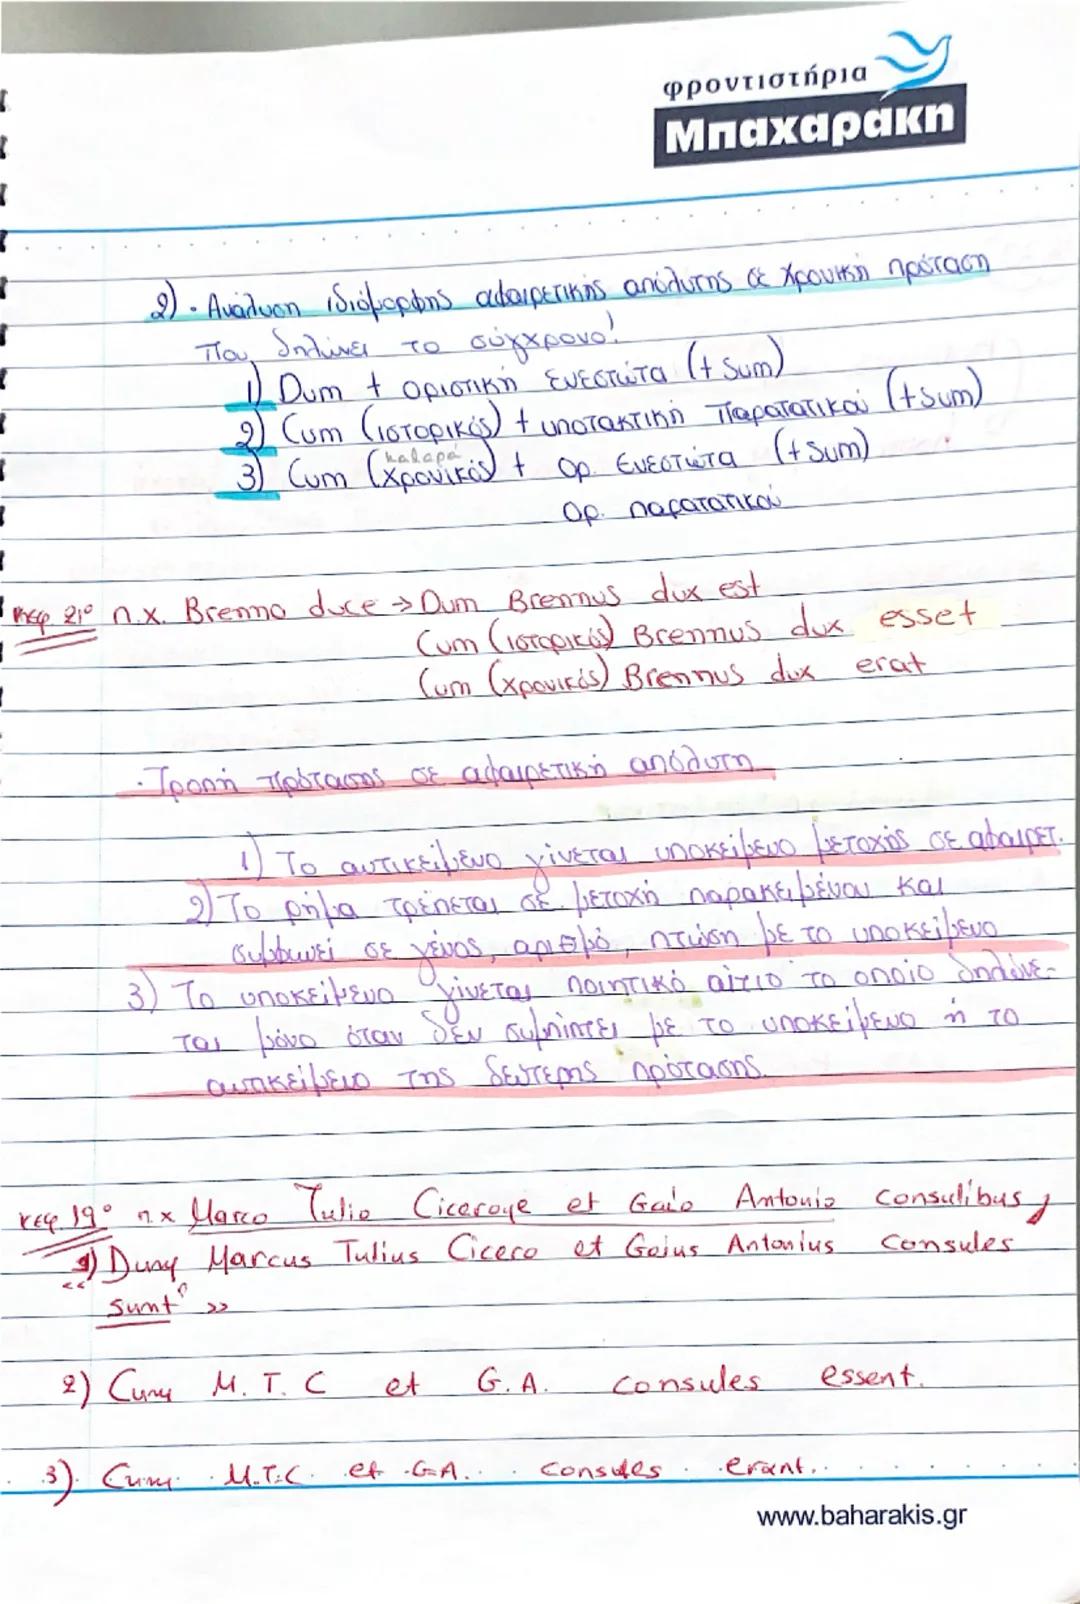 φροντιστήρια
Μπαχαράκη
2) · Ανάλυση ιδιόμορφης αφαιρετικής απόλυτης σε χρονική πρόταση
που δηλώνει το σύγχρονο!
1) Dum + οριστική Ενεστώτα (+ sum)
2) Cum (ιστορικός) + υποτακτική Παρατατικού (+sum)
καθαρά
3) Cum (χρονικός) + Ορ. Ενεστώτα (+ sum)
Ορ. παρατατικού
κεφ 21º π.χ. Brenno duce → Dum Brennus dux est
Cum (ιστορικός) Brennus dux esset
Cum (χρονικός) Brennus dux erat
· Τροπή πρότασης σε αφαιρετική απόλυτη
1) Το αντικείμενο γίνεται υποκείμενο μετοχής σε αφαιρετ.
2) Το ρήμα τρέπεται σε μετοχή παρακειμένου και
συμφωνεί σε γένος, αριθμό, πτώση με το υποκείμενο
3) Το υποκείμενο γίνεται ποιητικό αίτιο το οποίο δηλώνε-
ται μόνο όταν δεν συμπίπτει με το υποκείμενο ή το
αντικείμενο της δεύτερης πρότασης.
κεφ. 19º πχ Marco Tulio Cicerone et Gaio Antonio consulibus,
1) Dum Marcus Tulius Cicero et Gaius Antonius consules
«sunt»
2) Cum M. T. C et G. A. consules essent.
3) Cum M.T.C. et G.A. consules erant.
www.baharakis.gr